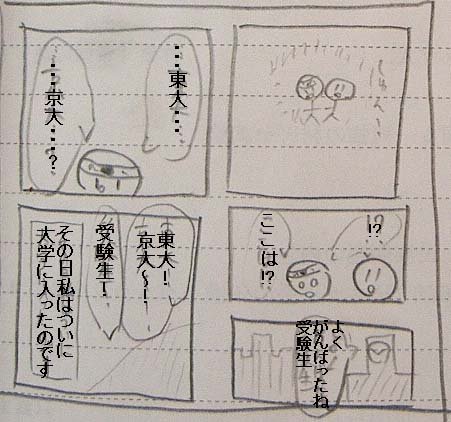 !?
ここは!?
よく
がんばったね
受験生
東大・・・・
・・・・京大・・・・?
東大！
京大～！
受験生！
その日私はついに
大学に入ったのです